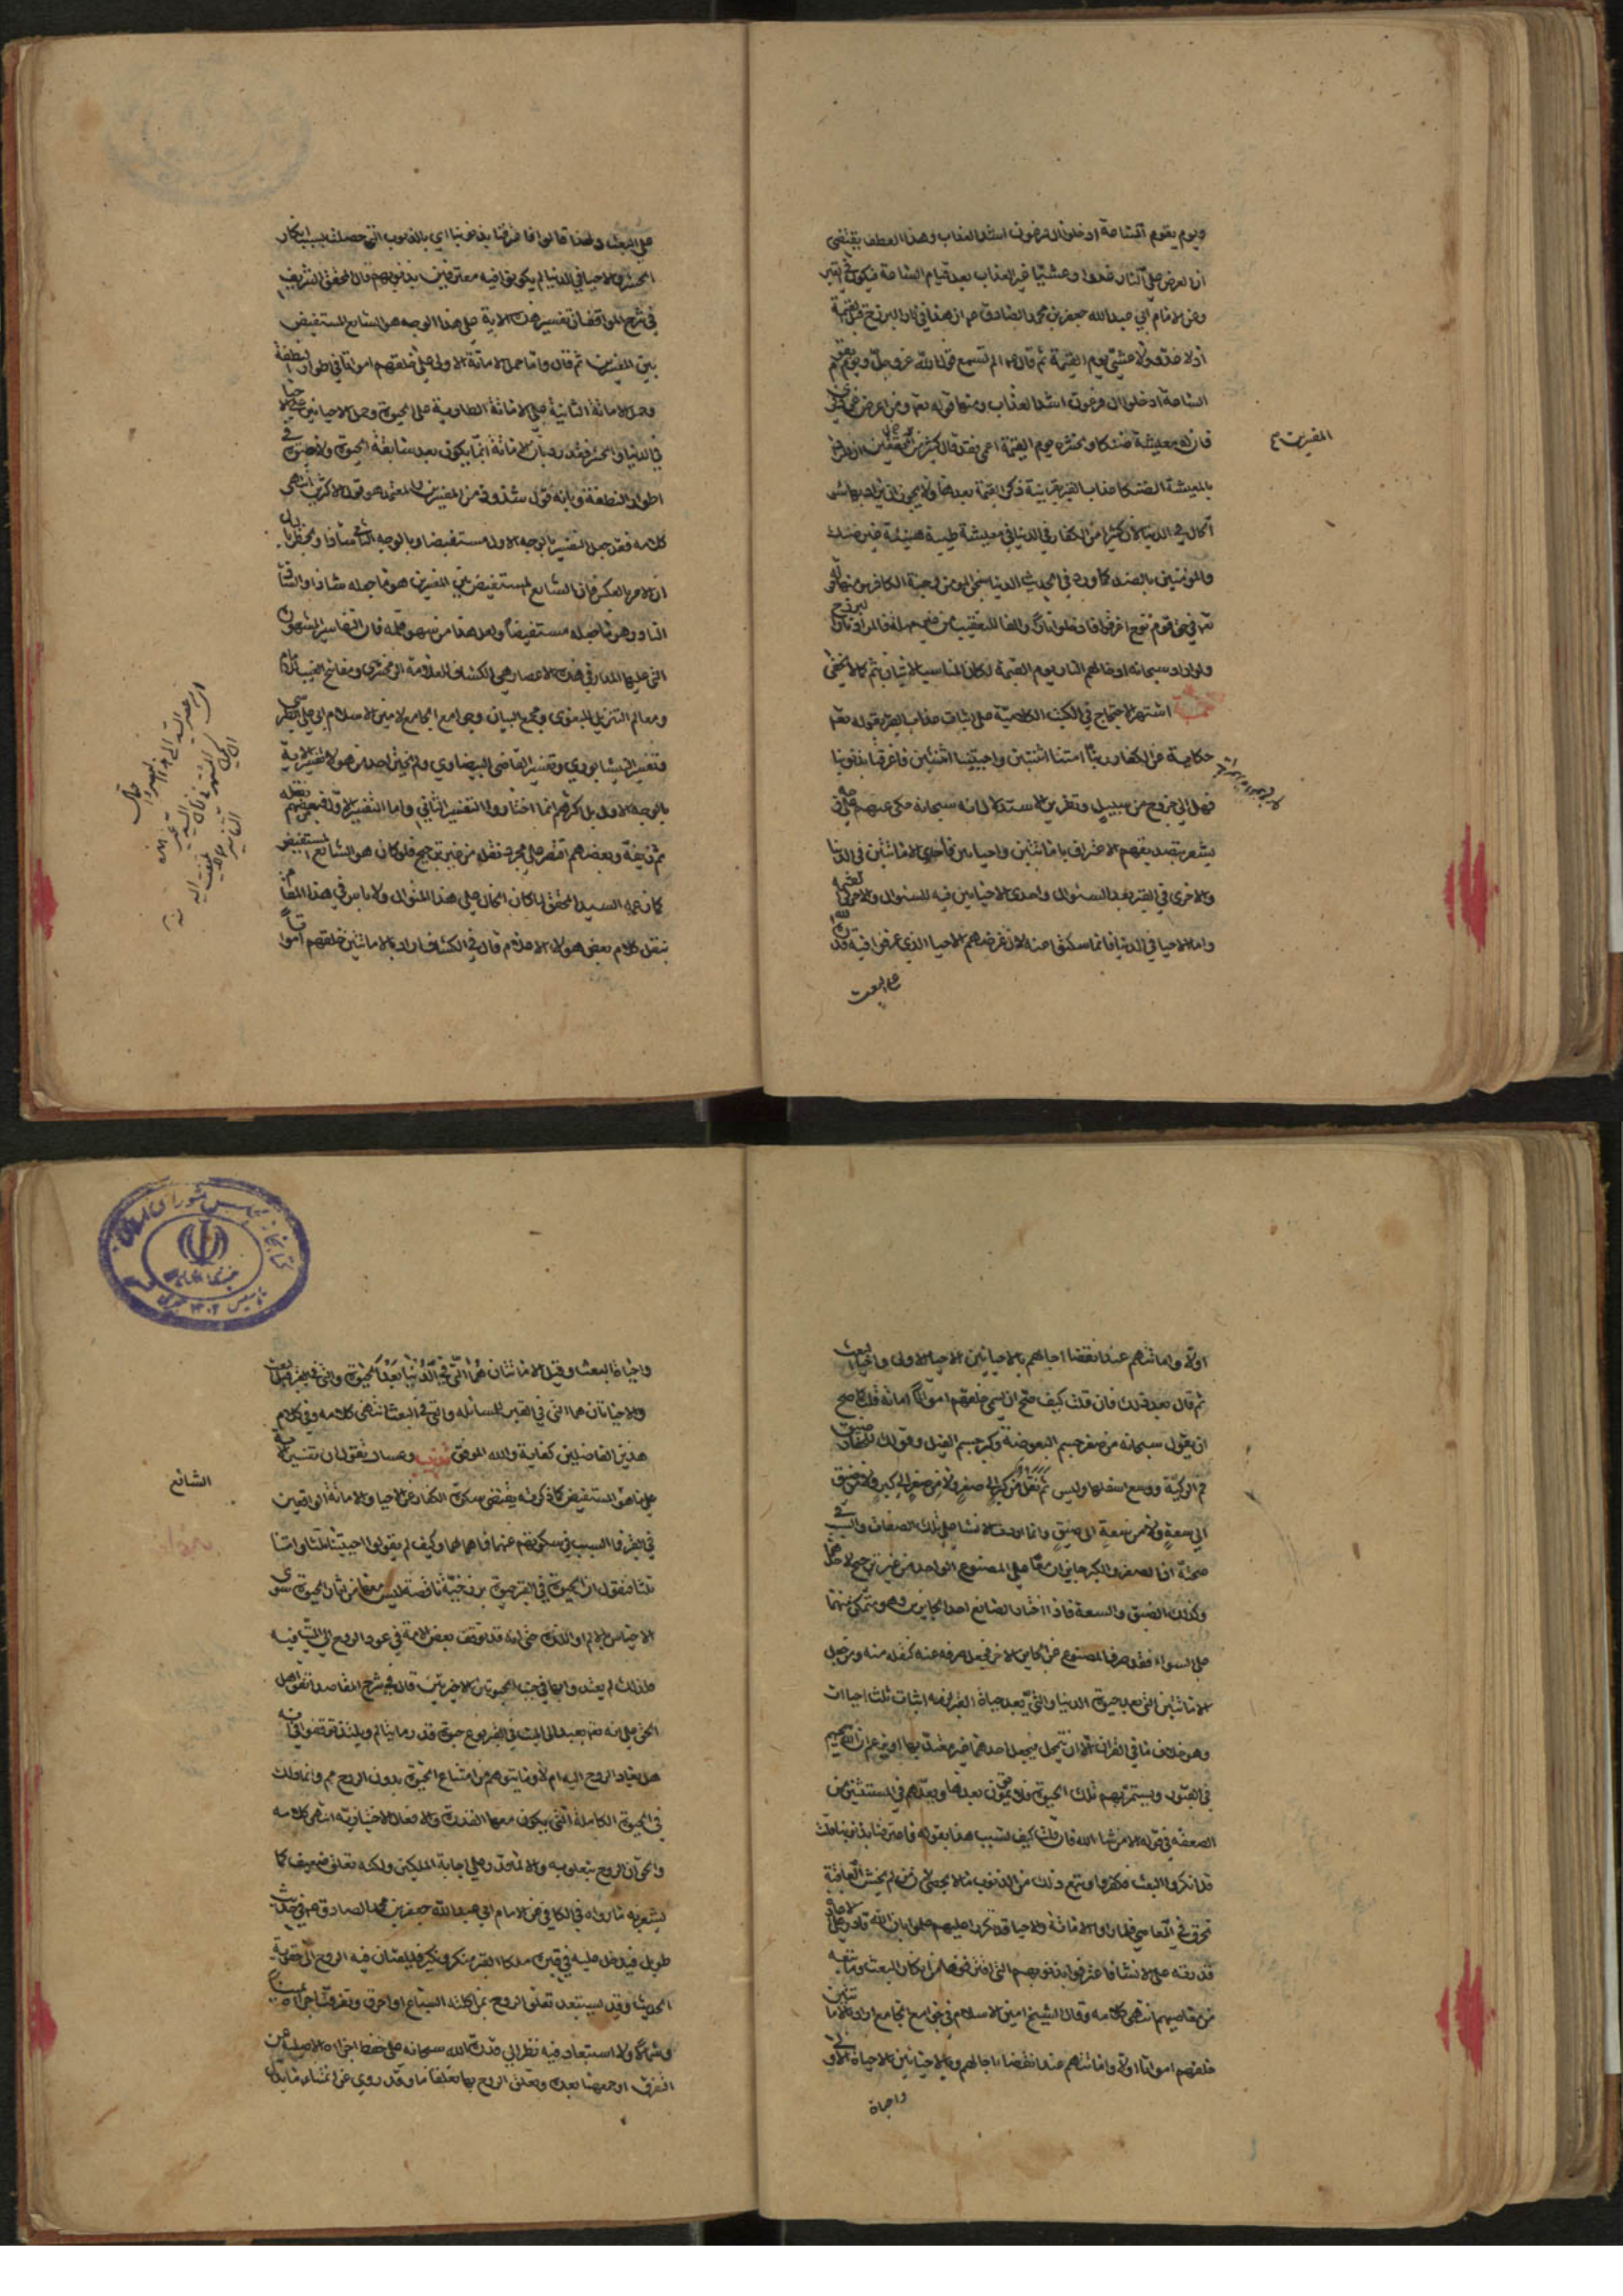 ويوم يقوم الساعة ادخلوا ال فرعون اشد العذاب وهذا العطف يقتضى
ان العرض على النار غدوا وعشيا غير العذاب بعد قيام الساعة فيكون في القبر
وعن الامام ابي عبدالله جعفر بن محمد الصادق ان هذا في نار البرزخ قبل القيمة
اذ لا غدو ولا عشي يوم القيمة ثم قال الم تسمع قول الله عز وجل ويوم تقوم
الساعة ادخلوا ال فرعون اشد العذاب ومنها قوله تعالى ومن اعرض عن ذكري
فان له معيشة ضنكا ونحشره يوم القيمة اعمى فقد قال كثير من
المفسرين
بالمعيشة الضنك عذاب القبر بقرينة ذكر القيمة بعدها ولا يجوز ان يراد بها سوء
الحال في الدنيا لان كثيرا من الكفار في الدنيا في معيشة طيبة هنيئة غير ضنك
والمؤمنين بالضد كما ورد في الحديث الدنيا سجن المؤمن وجنة الكافر ومنها قوله
تعالى في قوم نوح اغرقوا فادخلوا نارا والفاء للتعقيب من غير مهلة فالمراد نار البرزخ
ولو اراد سبحانه ادخالهم النار يوم القيمة لكان المناسب الاتيان بثم كما لا يخفى
اشتهر الاحتجاج في الكتب الكلامية على اثبات عذاب القبر بقوله تعالى
حكاية عن الكفار ربنا امتنا اثنتين واحييتنا اثنتين فاعترفنا بذنوبنا
فهل الى خروج من سبيل وتقرير الاستدلال انه سبحانه حكى عنهم على وجه
يشعر بتصديقهم الاعتراف باماتتين واحيائين فاحدى الاماتتين في الدنيا
والاخرى في القبر بعد السئوال واحدى الاحيائين فيه للسئوال والاخرى في القيمة
واما الاحياء في الدنيا فانما سكتوا عنه لان غرضهم الاحياء الذي عرفوا فيه قدرة الله
على البعث
على البعث ولهذا قالوا فاعترفنا بذنوبنا اي بالذنوب التي حصلت بسبب انكار
الحشر والاحياء في الدنيا لم يكونوا فيه معترفين بذنوبهم قال المحقق الشريف
في شرح المواقف ان تفسير هذه الاية على هذا الوجه هو الشايع المستفيض
بين المفسرين ثم قال واما حمل الاماتة الاولى على خلقهم امواتا في اطوار النطفة
وحمل الاماتة الثانية على الاماتة الطارية على الحيوة وحمل الاحيائين على الاحياء
في الدنيا والحشر فقد رد بان الاماتة انما يكون بعد سابقة الحيوة ولا حيوة في
اطوار النطفة وبانه قول شذوذ من المفسرين والمعتمد هو قول الاكثرين انتهى
كلامه فقد جعل التفسير بالوجه الاول مستفيضا وبالوجه الثاني شاذا
ان الامر بالعكس فان الشايع المستفيض بين المفسرين هو ما جعله شاذا والشاذ
النادر هو ما جعله مستفيضا ولعل هذا من سهو قلمه فان التفاسير المشهورة
التي عليها المدار في هذه الاعصار هي الكشاف للعلامة الزمخشري ومفاتيح الغيب للامام
ومعالم التنزيل للبغوي ومجمع البيان وجوامع الجامع لامين الاسلام ابي علي الطبرسي
وتفسير النيشابوري وتفسير القاضي البيضاوي ولم يختر احد من هؤلاء تفسير الاية
بالوجه الاول بل اكثرهم انما اختاروا التفسير الثاني واما التفسير الاول فبعضهم نقله
ثم زيفه وبعضهم اقتصر على مجرد نقله من غير ترجيح فلو كان هو الشايع المستفيض
كما زعمه السيد المحقق لما كان الحال على هذا المنوال ولا باس في هذا المقام
بنقل كلام بعض هؤلاء الاعلام قال في الكشاف اراد بالاماتتين خلقهم امواتا
اولا واماتتهم عند انقضاء اجالهم بالاحيائين الاحياء الاولى واحياء البعث
ثم قال بعد ذلك فان قلت كيف صح ان يسمى خلقهم امواتا اماتة قلت كما صح
ان يقول سبحانه من صغر جسم البعوضة وكبر جسم الفيل وقولك للحفار ضيق
فم الركية ووسع اسفلها وليس ثم نقل من كبر الى صغر ولا من صغر الى كبر ولا من ضيق
الى سعة ولا من سعة الى ضيق وانما اردت الانشاء على تلك الصفات والسبب في
صحته ان الصغر والكبر جايزان معا على المصنوع الواحد من غير ترجيح لاحدهما
وكذلك الضيق والسعة فاذا اختار الصانع احد الجايزين وهو متمكن منهما
على السواء فقد صرف المصنوع عن الجايز الاخر فجعل صرفه عنه كنقله منه ومن جعل
الاماتتين التي بعد حيوة الدنيا والتي بعد حياة القبر لزمه اثبات ثلث احياءات
وهو خلاف ما في القران الا ان يتمحل فيجعل احدهما غير معتد بها او يزعم ان الله يحييهم
في القبور ويستمر بهم تلك الحيوة فلا يموتون بعدها ويعدهم في المستثنين من
الصعقة في قوله الا من شاء الله فان قلت كيف تسبب هذا لقوله فاعترفنا بذنوبنا قلت
قد انكروا البعث فكفروا وتبع ذلك من الذنوب ما لا يحصى لان من لم يخش العاقبة
تخرق في المعاصي فلما راوا الاماتة والاحياء قد تكررا عليهم علموا بان الله قادر على الاعادة
قدرته على الانشاء فاعترفوا بذنوبهم التي اقترفوها من انكار البعث وما تبعه
من معاصيهم انتهى كلامه وقال الشيخ امين الاسلام في جوامع الجامع اراد بالاماتتين
خلقهم امواتا اولا واماتتهم عند انقضاء اجالهم وبالاحيائين الاحياة الاولى
واحياة
واحياة البعث وقيل الاماتتان هما التي في الدنيا بعد الحيوة والتي في القبر قبل البعث
والاحياتان هما التي في القبر للمسائلة والتي في البعث انتهى كلامه وفي كلام
هذين الفاضلين كفاية والله الموفق وعساك تقول ان تفسير الاية
الشائع
على ما هو المستفيض كما ذكرته يقتضى سكوت الكفار عن الاحياء والاماتة الواقعين
في القبر فما السبب في سكوتهم عنهما وكيف لم يقولوا احييتنا ثلثا وامتنا
ثلثا فنقول ان الحيوة في القبر حيوة برزخية ناقصة ليس معها من اثار الحيوة سوى
الاحساس بالالم او اللذة حتى انه قد توقف بعض الامة في عود الروح الى الميت فيه
فلذلك لم يعتد وابها في جنب الحيوتين الاخيرتين قال في شرح المقاصد اتفق اهل
الحق على انه تعالى يعيد الى الميت في القبر نوع حيوة قدر ما يتالم ويلتذ لكن توقفوا في انه
هل يعاد الروح اليه ام لا وما يتوهم من امتناع الحيوة بدون الروح مم وانما ذلك
في الحيوة الكاملة التي يكون معها القدرة والافعال الاختيارية انتهى كلامه
والحق ان الروح يتعلق به والا لما قدر على اجابة الملكين ولكنه تعلق ضعيف كما
يشعر به ما رواه في الكافي عن الامام ابي عبدالله جعفر بن محمد الصادق في حديث
طويل فيدخل عليه في قبره ملكا القبر منكر ونكير فيلقيان فيه الروح الى حقويه
الحديث وقد يستبعد تعلق الروح بمن اكلته السباع او احرق وتفرقت اجزائه يمينا
وشمالا ولا استبعاد فيه نظرا الى قدرة الله سبحانه على حفظ اجزائه الاصلية عن
التفرق او جمعها بعده وتعلق الروح بها تعلقا ما وقد روي عن ائمتنا